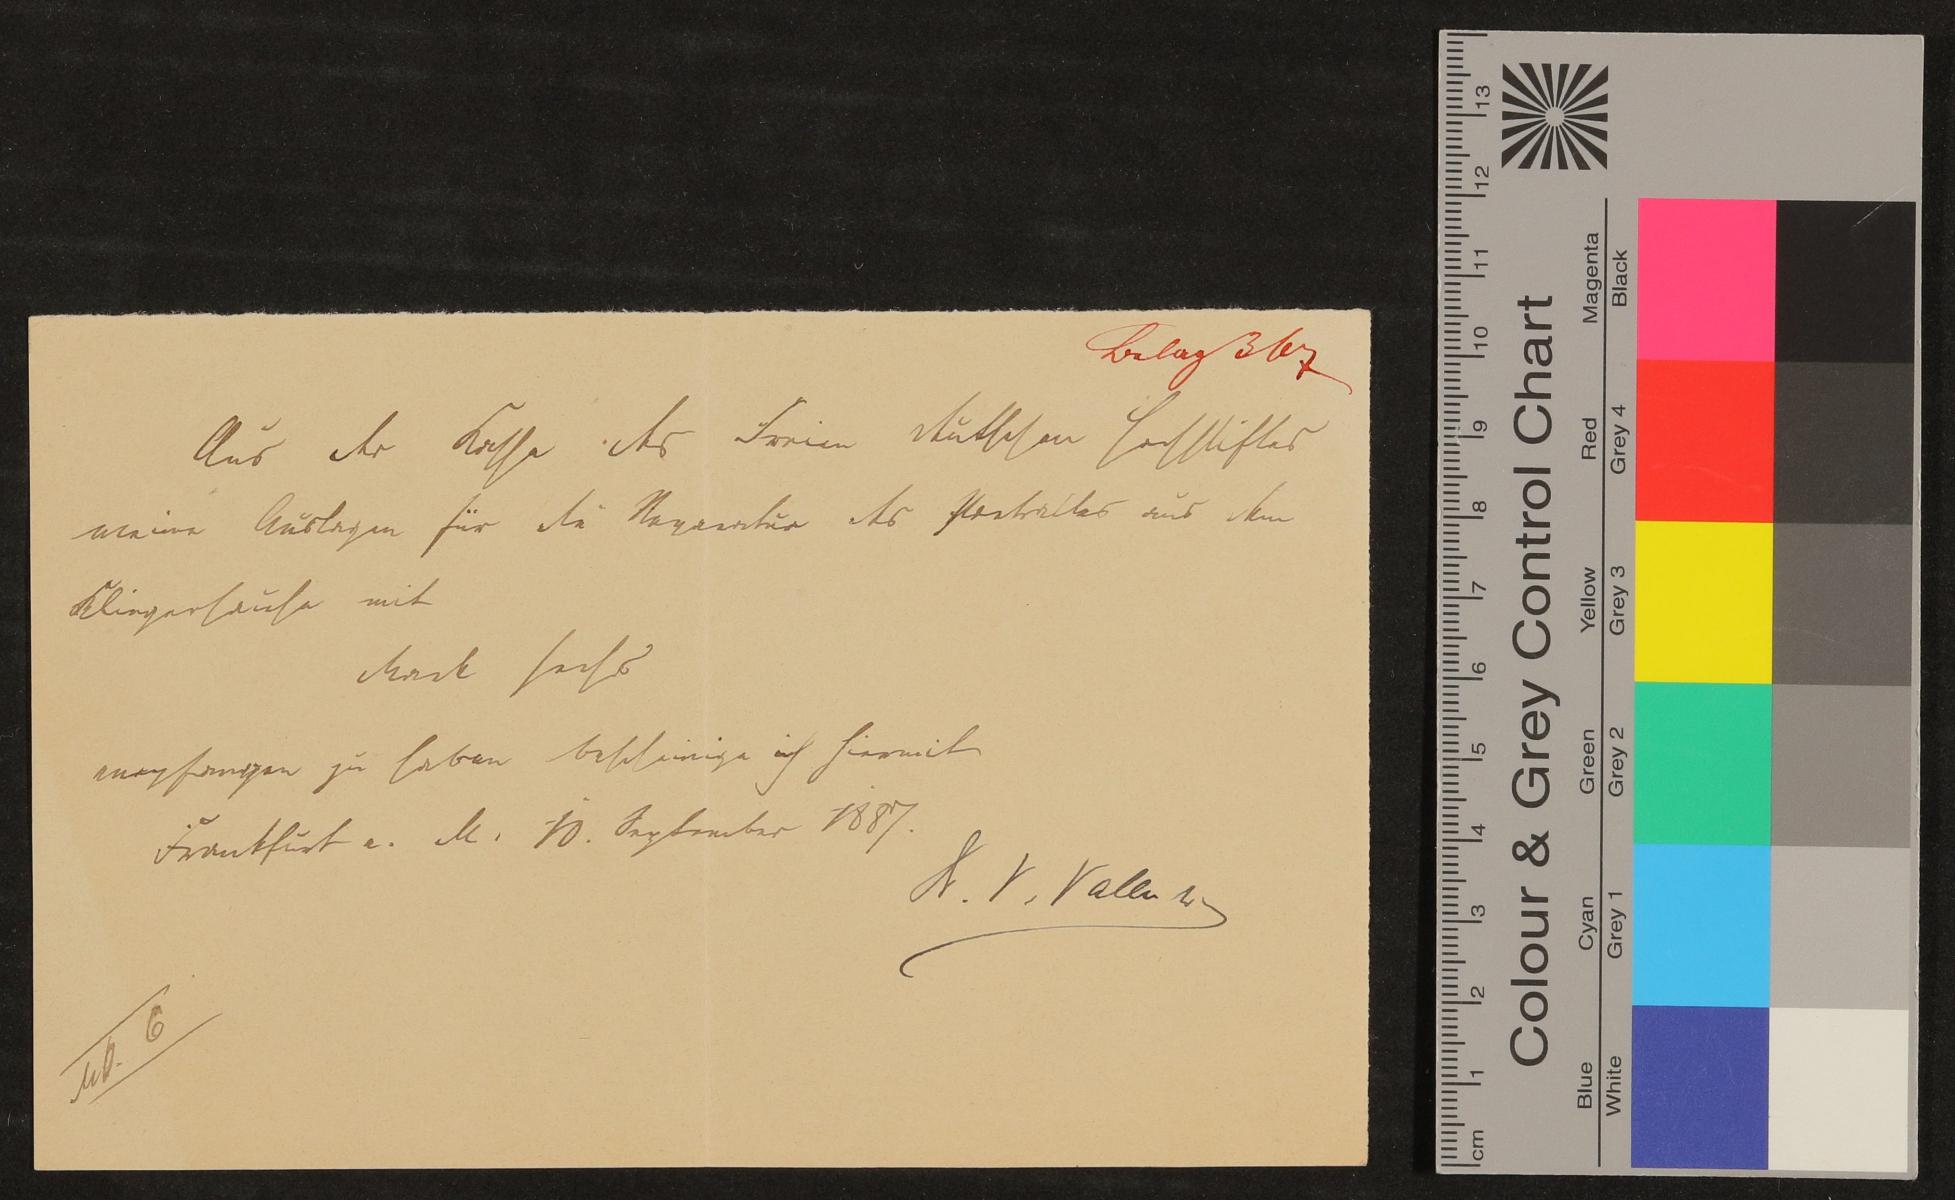 Belag 367
Aus der Kasse des Freien deutschen Hochstiftes
meine Auslagen für die Reparatur des Portraites aus dem
Klingerhause mit
Mark sechs
empfangen zu haben bescheinige ich hiermit
Frankfurt a. M. 10. September 1887.
V. Valentin
M. 6
Colour & Grey Control Chart
Magenta
Black
Red
Grey 4
Yellow
Grey 3
Green
Grey 2
Cyan
Grey 1
Blue
White
13
12
11
10
9
8
7
6
5
4
3
2
1
cm